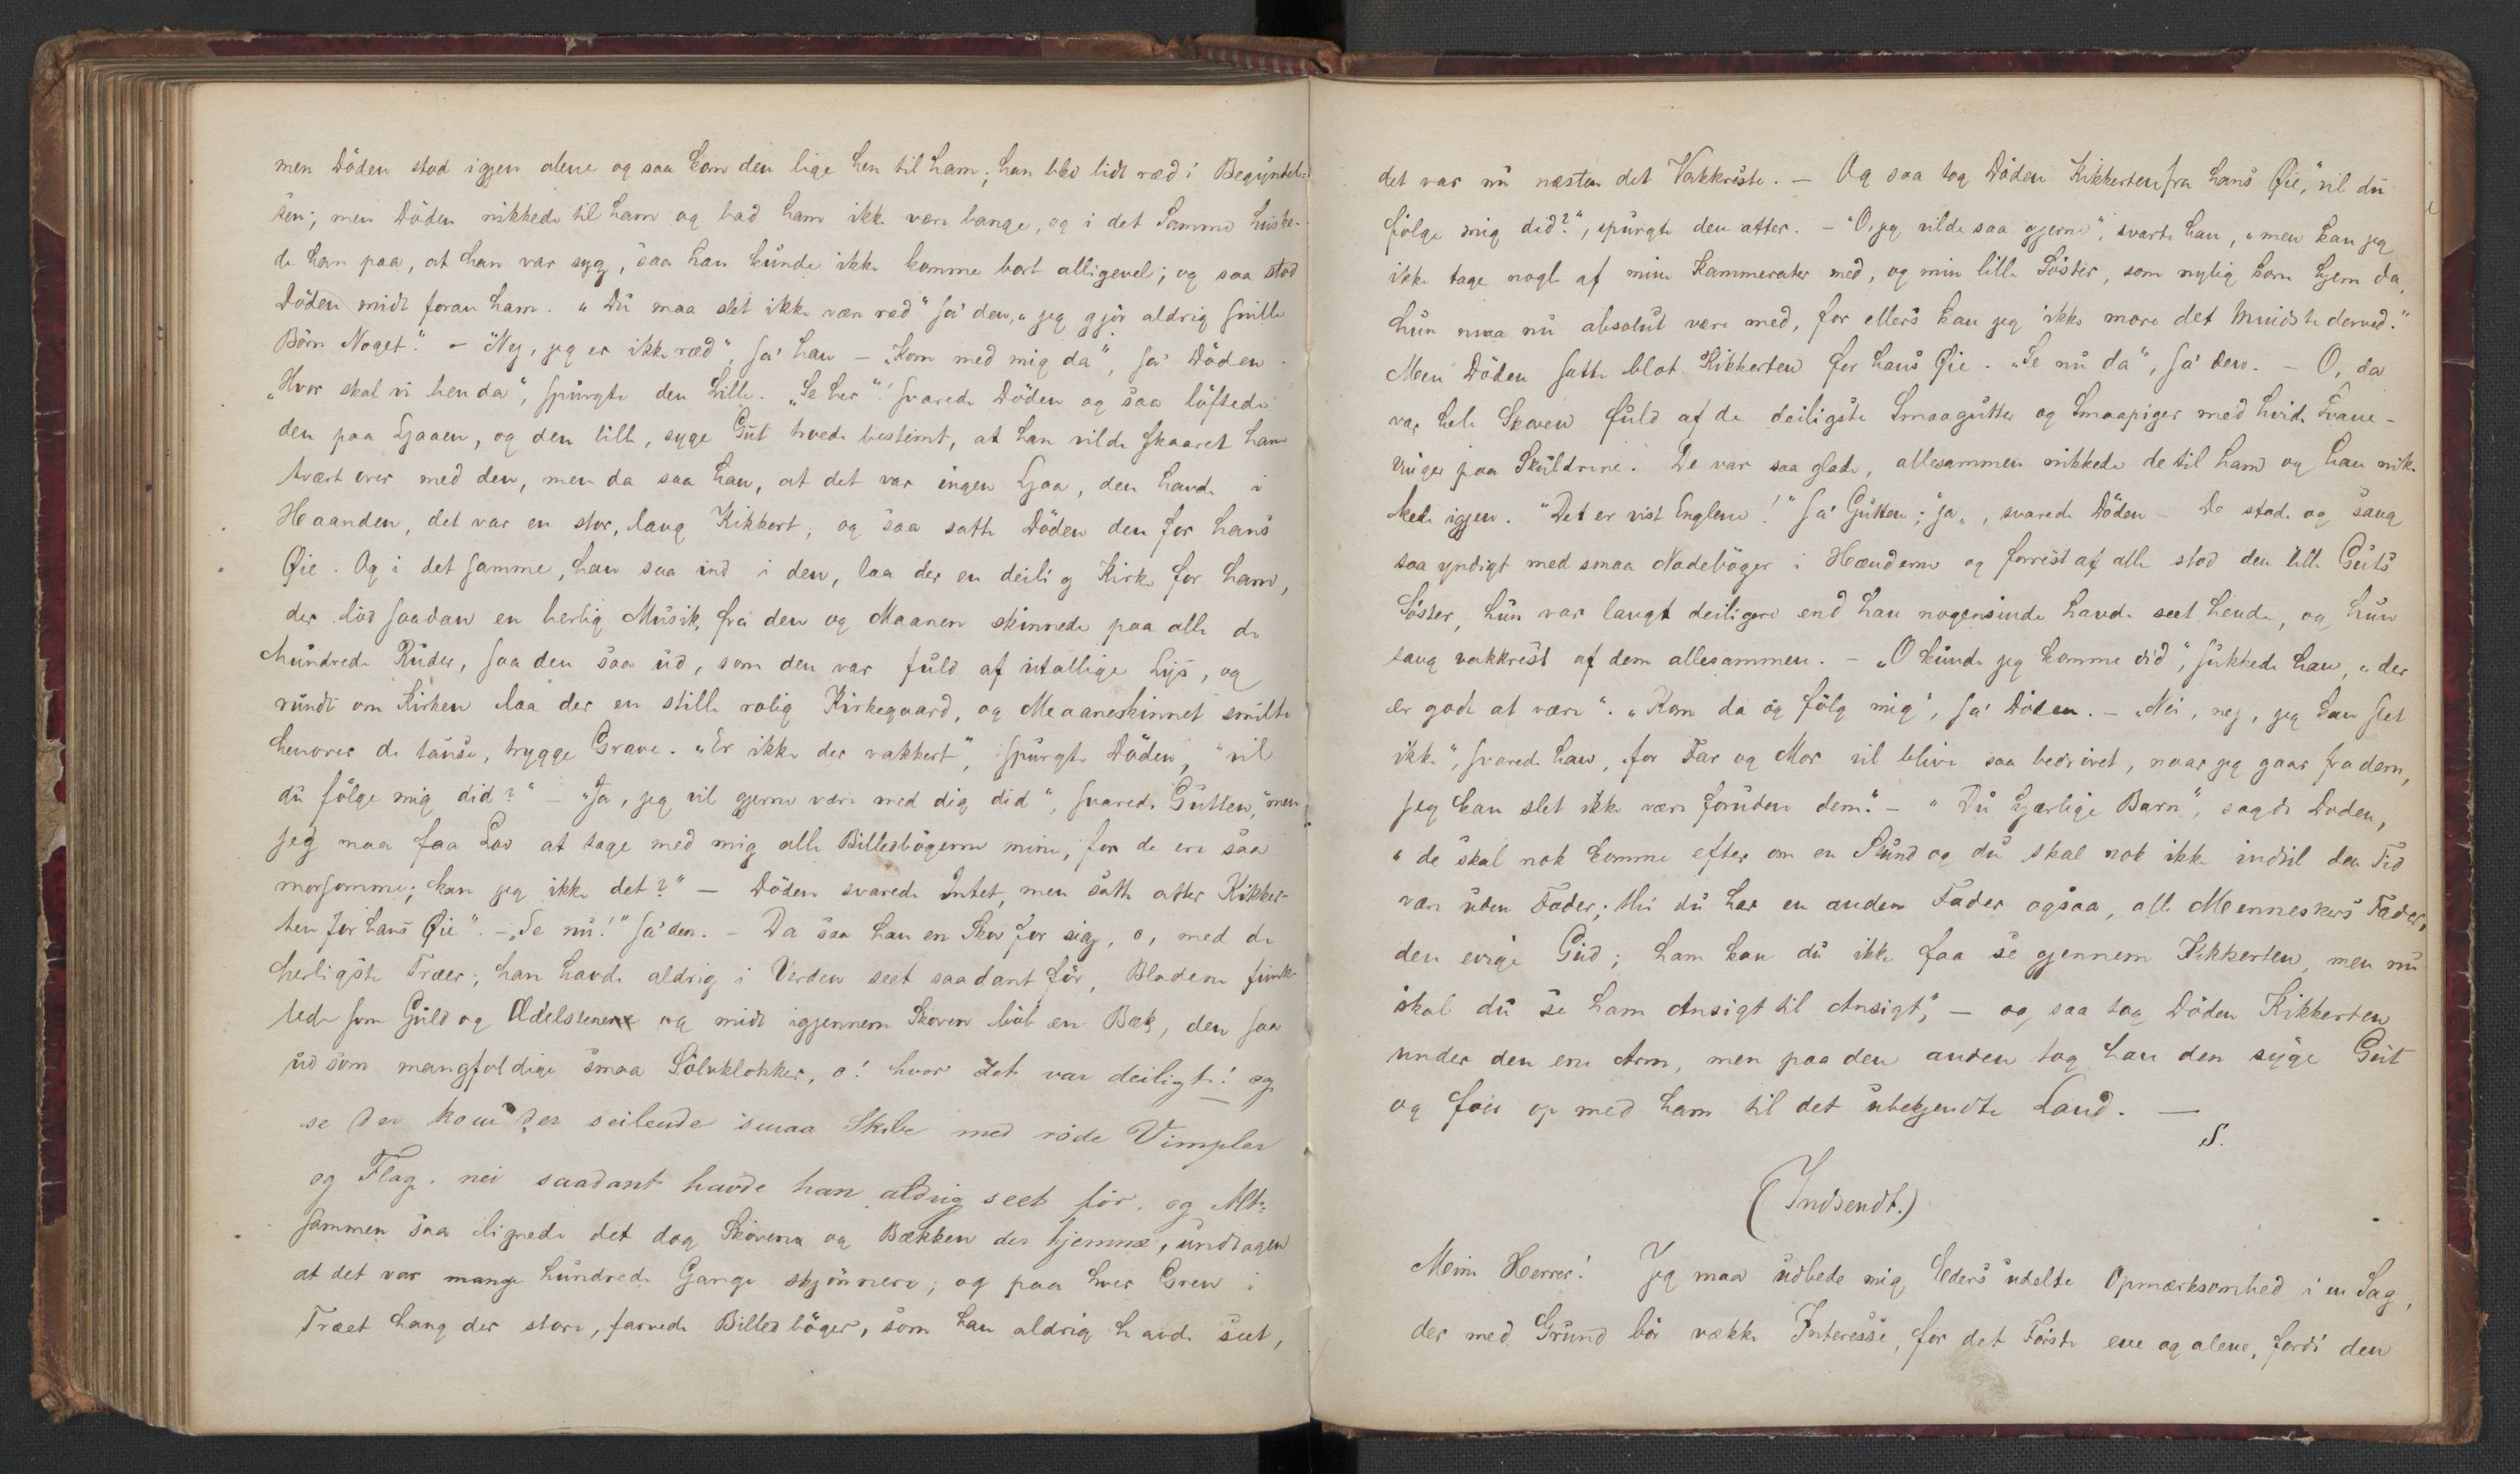 men Döden stod igjen alene og saa kom den lige hen til ham; han blev lidt ræd i Begyndel-
sen; men Döden nikkede til ham og bad ham ikke være bange, og i det Samme huske-
de han paa, at han var syg, saa han kunde ikke komme bort alligevel; og saa stod
Döden midt foran ham. "Du maa slet ikke være ræd" sa' den, "jeg gjör aldrig snille
Börn Noget." – "Nej, jeg er ikke ræd", sa' han – "Kom med mig da", sa' Döden.
"Hvor skal vi hen da", spurgte den Lille. "Se her"! svarede Döden og saa löftede
den paa Ljaaen, og den lille, syge Gut troede bestemt, at han vilde skaaret ham
tvært over med den, men da saa han, at det var ingen Ljaa, den havde i
Haanden, det var en stor, lang Kikkert; og saa satte Döden den for hans
Øie. Og i det samme, han saa ind i den, laa der en deilig Kirke for ham,
der löd saadan en herlig Musik fra den og Maanen skinnede paa alle de
hundrede Ruder, saa den saa ud, som den var fuld af utallige Lys, og
rundt om Kirken laa der en stille rolig Kirkegaard, og Maaneskinnet smilte
henover de tause, trygge Grave. "Er ikke der vakkert", spurgte Döden, "vil
du fölge mig did?" – "Ja, jeg vil gjerne være med dig did", svarede Gutten, "men
jeg maa faa Lov at tage med mig alle Billedbögerne mine, for de ere saa
morsomme; kan jeg ikke det?" – Döden svarede Intet, men satte atter Kikker-
ten for hans Øie". – "Se nu!" sa' den. – Da saa han en Skov for sig, o, med de
herligste Træer; han havde aldrig i Verden seet saadant för, Bladene funk-
lede som Guld og Ædelstene og midt igjennem Skoven löb en Bæk, den saa
ud som mangfoldige smaa Sölvklokker, o! hvor det var deiligt! og
se der kom der seilende smaa Skibe med röde Vimpler
og Flag. nei saadant havde han aldrig seet för, og Alt-
sammen saa lignede det dog Skoven og Bækken der hjemme, undtagen
at det var mange hundrede Gange skjönnere; og paa hver Gren i
Træet hang der store, farvede Billedböger, som han aldrig havde seet,
det var nu næsten det Vakkreste. – Og saa tog Döden Kikkerten fra hans Øie, "vil du
fölge mig did?", spurgte den atter. – "O, jeg vilde saa gjerne", svarte han, "men kan jeg
ikke tage nogle af mine Kammerater med, og min lille Söster, som nylig kom hjem da,
hun maa nu absolut være med, for ellers kan jeg ikke more det Mindste derved."
Men Döden satte blot Kikkerten for hans Øie. "Se nu da", sa' den. – O, da
var hele Skoven fuld af de deiligste Smaagutter og Smaapiger med hvide Svane-
vinger paa Skuldrene. De var saa glade, allesammen nikkede de til ham og han nik-
kede igjen. "Det er vist Englene!" sa' Gutten; "ja", svarede Döden – De stode og sang
saa yndigt med smaa Nodeböger i Hænderne og forrest af alle stod den lille Guts
Söster, hun var langt deiligere end han nogensinde havde seet hende, og hun
sang vakkrest af dem allesammen. – "O kunde jeg komme did", sukkede han, "der
er godt at være". "Kom da og fölg mig", sa' Döden. – "Nei, nej, jeg kan slet
ikke", svarede han, "for Far og Mor vil blive saa bedrövet, naar jeg gaar fra dem,
jeg kan slet ikke være foruden dem." – "Du kjærlige Barn", sagde Döden,
"de skal nok komme efter om en Stund og du skal nok ikke indtil den Tid
være uden Fader; thi du har en anden Fader ogsaa, alle Menneskers Fader,
den evige Gud; ham kan du ikke faa se gjennem Kikkerten, men nu
skal du se ham Ansigt til Ansigt", – og saa tog Döden Kikkerten
under den ene Arm, men paa den anden tog han den syge Gut
og foer op med ham til det ubekjendte Land. –
S.
(Indsendt.)
Mine Herrer! Jeg maa udbede mig Eders udelte Opmærksomhed i en Sag,
der med Grund bör vække Interesse, for det Förste ene og alene, fordi den